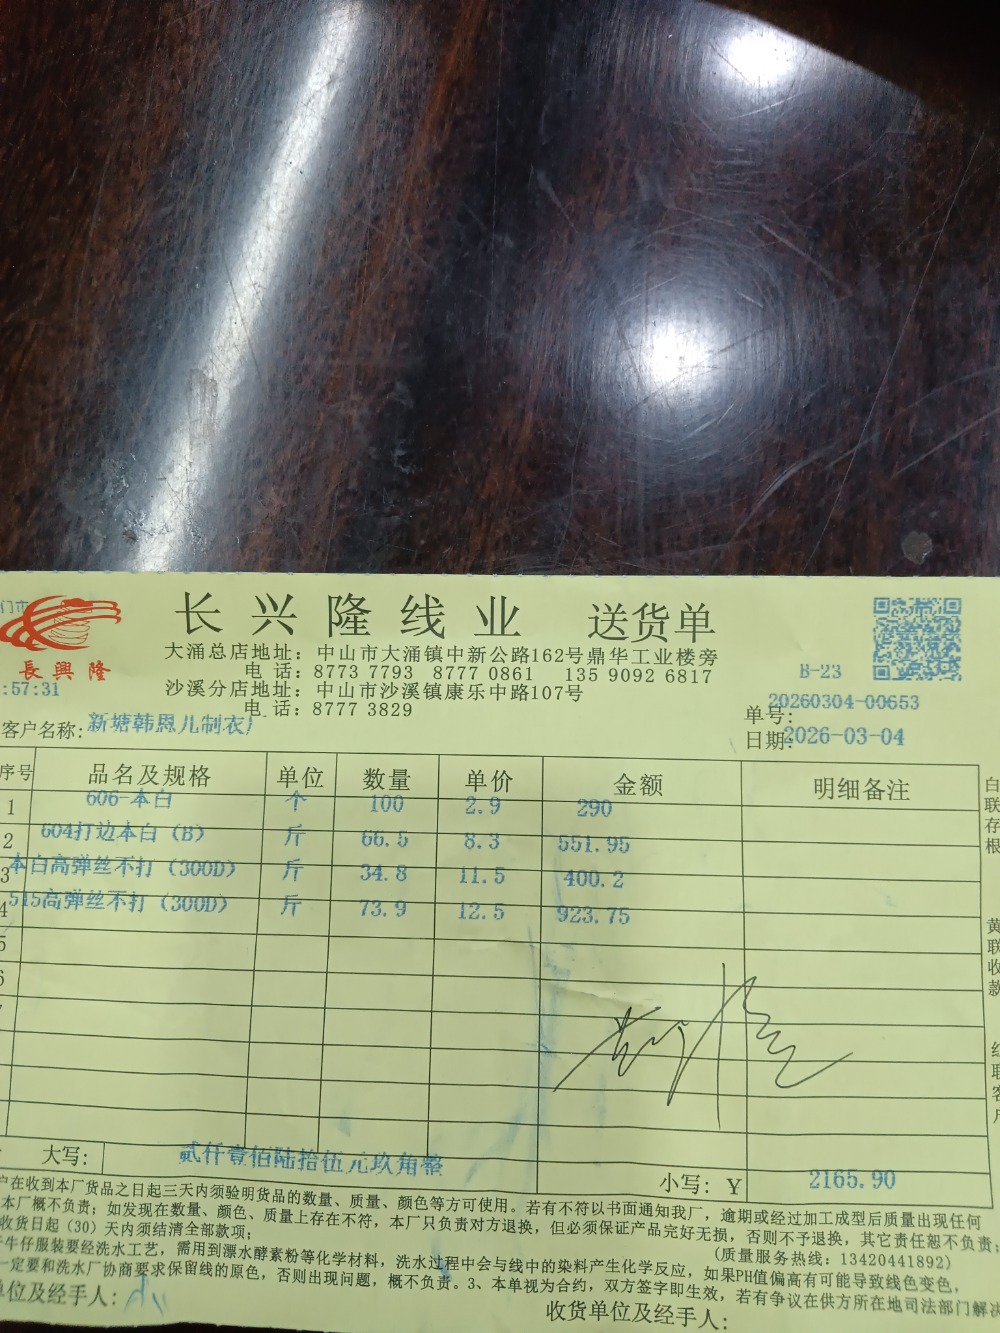 长兴隆线业 送货单
長興隆
大涌总店地址：中山市大涌镇中新公路162号鼎华工业楼旁
电 话：8773 7793 8777 0861 135 9092 6817
沙溪分店地址：中山市沙溪镇康乐中路107号
电 话：8777 3829
:57:31
B-23
单号：20260304-00653
日期：2026-03-04
客户名称：新塘韩恩儿制衣厂
序号 品名及规格 单位 数量 单价 金额 明细备注
1 606-本白 个 100 2.9 290
2 604打边本白（B） 斤 66.5 8.3 551.95
3 本白高弹丝不打（300D） 斤 34.8 11.5 400.2
4 515高弹丝不打（300D） 斤 73.9 12.5 923.75
5
6
大写：贰仟壹佰陆拾伍元玖角整
小写：￥ 2165.90
户在收到本厂货品之日起三天内须验明货品的数量、质量、颜色等方可使用。若有不符以书面通知我厂，逾期或经过加工成型后质量出现任何
本厂概不负责；如发现在数量、颜色、质量上存在不符，本厂只负责对方退换，但必须保证产品完好无损，否则不予退换，其它责任恕不负责；
收货日起（30）天内须结清全部款项；
（质量服务热线：13420441892）
牛仔服装要经洗水工艺，需用到漂水酵素粉等化学材料，洗水过程中会与线中的染料产生化学反应，如果PH值偏高有可能导致线色变色，
一定要和洗水厂协商要求保留线的原色，否则出现问题，概不负责。3、本单视为合约，双方签字即生效，若有争议在供方所在地司法部门解决
单位及经手人：
收货单位及经手人：
白联存根
黄联收款
红联客户